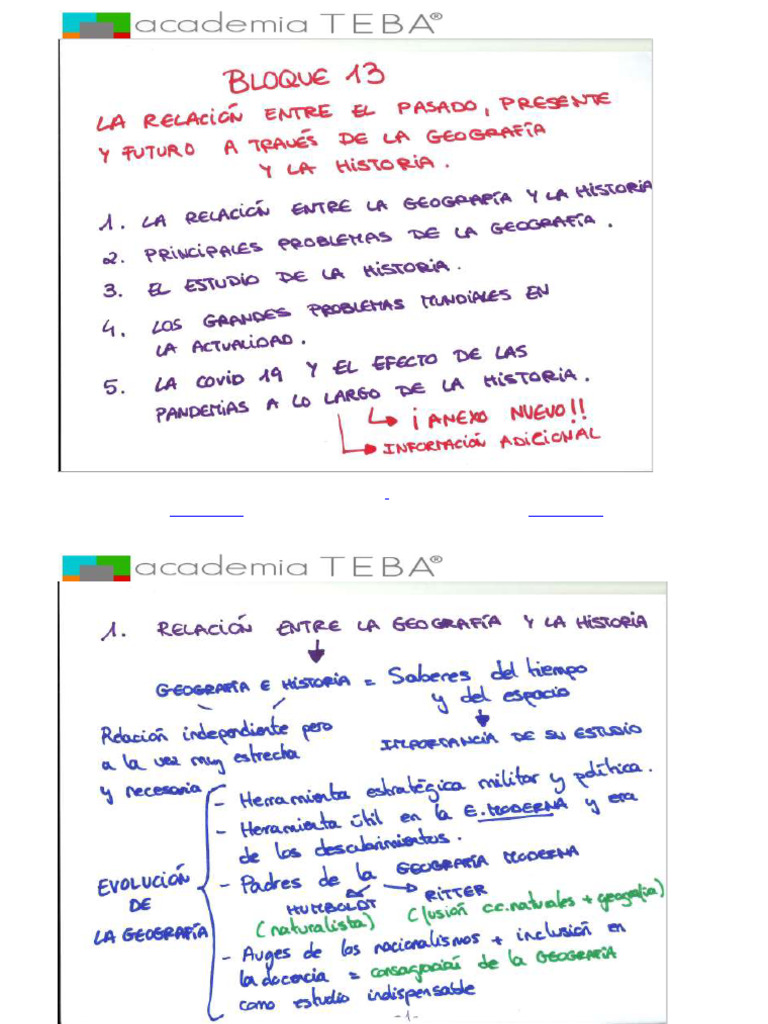 academia TEBA®
BLOQUE 13
LA RELACIÓN ENTRE EL PASADO, PRESENTE
Y FUTURO A TRAVÉS DE LA GEOGRAFÍA
Y LA HISTORIA.
1. LA RELACIÓN ENTRE LA GEOGRAFÍA Y LA HISTORIA
2. PRINCIPALES PROBLEMAS DE LA GEOGRAFÍA.
3. EL ESTUDIO DE LA HISTORIA.
4. LOS GRANDES PROBLEMAS MUNDIALES EN
LA ACTUALIDAD.
5. LA COVID 19 Y EL EFECTO DE LAS
PANDEMIAS A LO LARGO DE LA HISTORIA.
¡ANEXO NUEVO!!
INFORMACIÓN ADICIONAL
academia TEBA®
1. RELACIÓN ENTRE LA GEOGRAFÍA Y LA HISTORIA
GEOGRAFÍA E HISTORIA = Saberes del tiempo
y del espacio
Relación independiente pero
a la vez muy estrecha
y necesaria
IMPORTANCIA DE SU ESTUDIO
EVOLUCIÓN
DE
LA GEOGRAFÍA
- Herramienta estratégica militar y política.
- Herramienta útil en la E. MODERNA y era
de los descubrimientos.
- Padres de la GEOGRAFÍA MODERNA
HUMBOLDT
(naturalista)
RITTER
(fusión cc.naturales + geografía)
- Auges de los nacionalismos + inclusión en
la docencia = consagración de la GEOGRAFÍA
como estudio indispensable
-1-